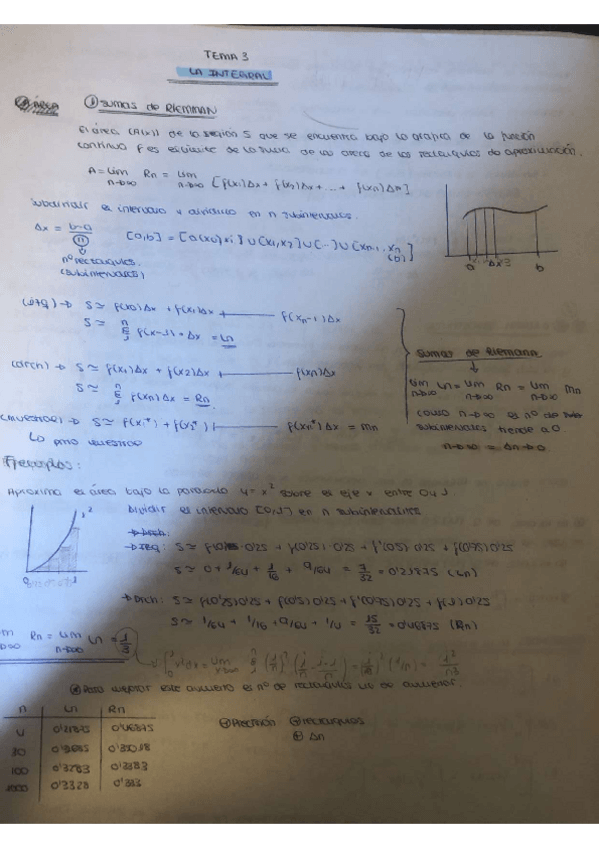 TEMA 3
LA INTEGRAL
ÁREA ① SUMAS de RIEMMAN
El área (A(x)) de la región S que se encuentra bajo la gráfica de la función
continua f es el límite de la suma de las áreas de los rectángulos de aproximación.
A = lim Rn = lim [f(x1)Δx + f(x2)Δx + ... + f(xn)Δx]
n→∞ n→∞
subdividir el intervalo y dividirlo en n subintervalos.
Δx = b-a / n [a,b] = [a(x0) x1] ∪ [x1,x2] ∪ [...] ∪ [xn-1, xn (b)]
nº rectángulos.
(subintervalos)
a Δx b
(izq) → S ≃ f(x0)Δx + f(x1)Δx + f(xn-1)Δx
S ≃ Σ f(x-1)·Δx = Ln
(drch) → S ≃ f(x1)Δx + f(x2)Δx + f(xn)Δx
S ≃ Σ f(xn)Δx = Rn
(muestral) → S ≃ f(x1*) + f(x2*) f(xn*)Δx = mn
Lo pno muestreo
Sumas de Riemann
lim Ln = lim Rn = lim mn
n→∞ n→∞ n→∞
cuando n→∞ el nº de
subintervalos tiende a 0.
n→∞ = Δn→0
Ejemplos:
Aproxima el área bajo la parábola y = x² sobre el eje x entre 0 y 1
Dividir el intervalo [0,1] en n subintervalos
→ Drch:
→ Izq: S ≃ f(0)·0'25 + f(0'25)·0'25 + f(0'5)·0'25 + f(0'75)0'25
S ≃ 0 + 1/64 + 1/16 + 9/64 = 7/32 = 0'21875 (Ln)
→ Drch: S ≃ f(0'25)0'25 + f(0'5)0'25 + f(0'75)0'25 + f(1)0'25
S ≃ 1/64 + 1/16 + 9/64 + 1/4 = 15/32 = 0'46875 (Rn)
Rn = lim Ln = 1/3
n→∞
n Ln Rn
4 0'21875 0'46875
100 0'3283 0'3383
1000 0'3328 0'333
⊕ Precisión ⊕ rectángulos
Δn